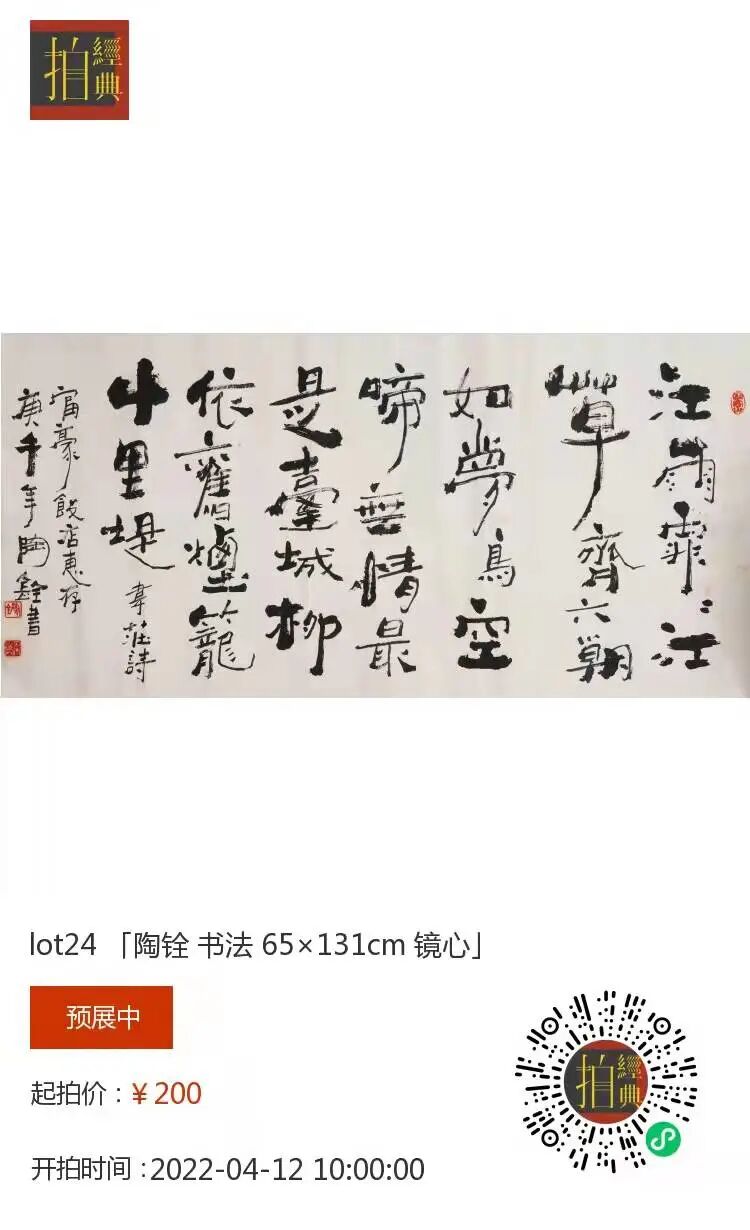 經典
拍
江雨霏〻江
草齊六朝
如夢鳥空
啼無情最
是臺城柳
依舊煙籠
十里堤 韋莊詩
富豪飯店惠存
庚午年陶銓書
lot24 「陶铨 书法 65×131cm 镜心」
预展中
起拍价：¥ 200
开拍时间：2022-04-12 10:00:00
經典
拍